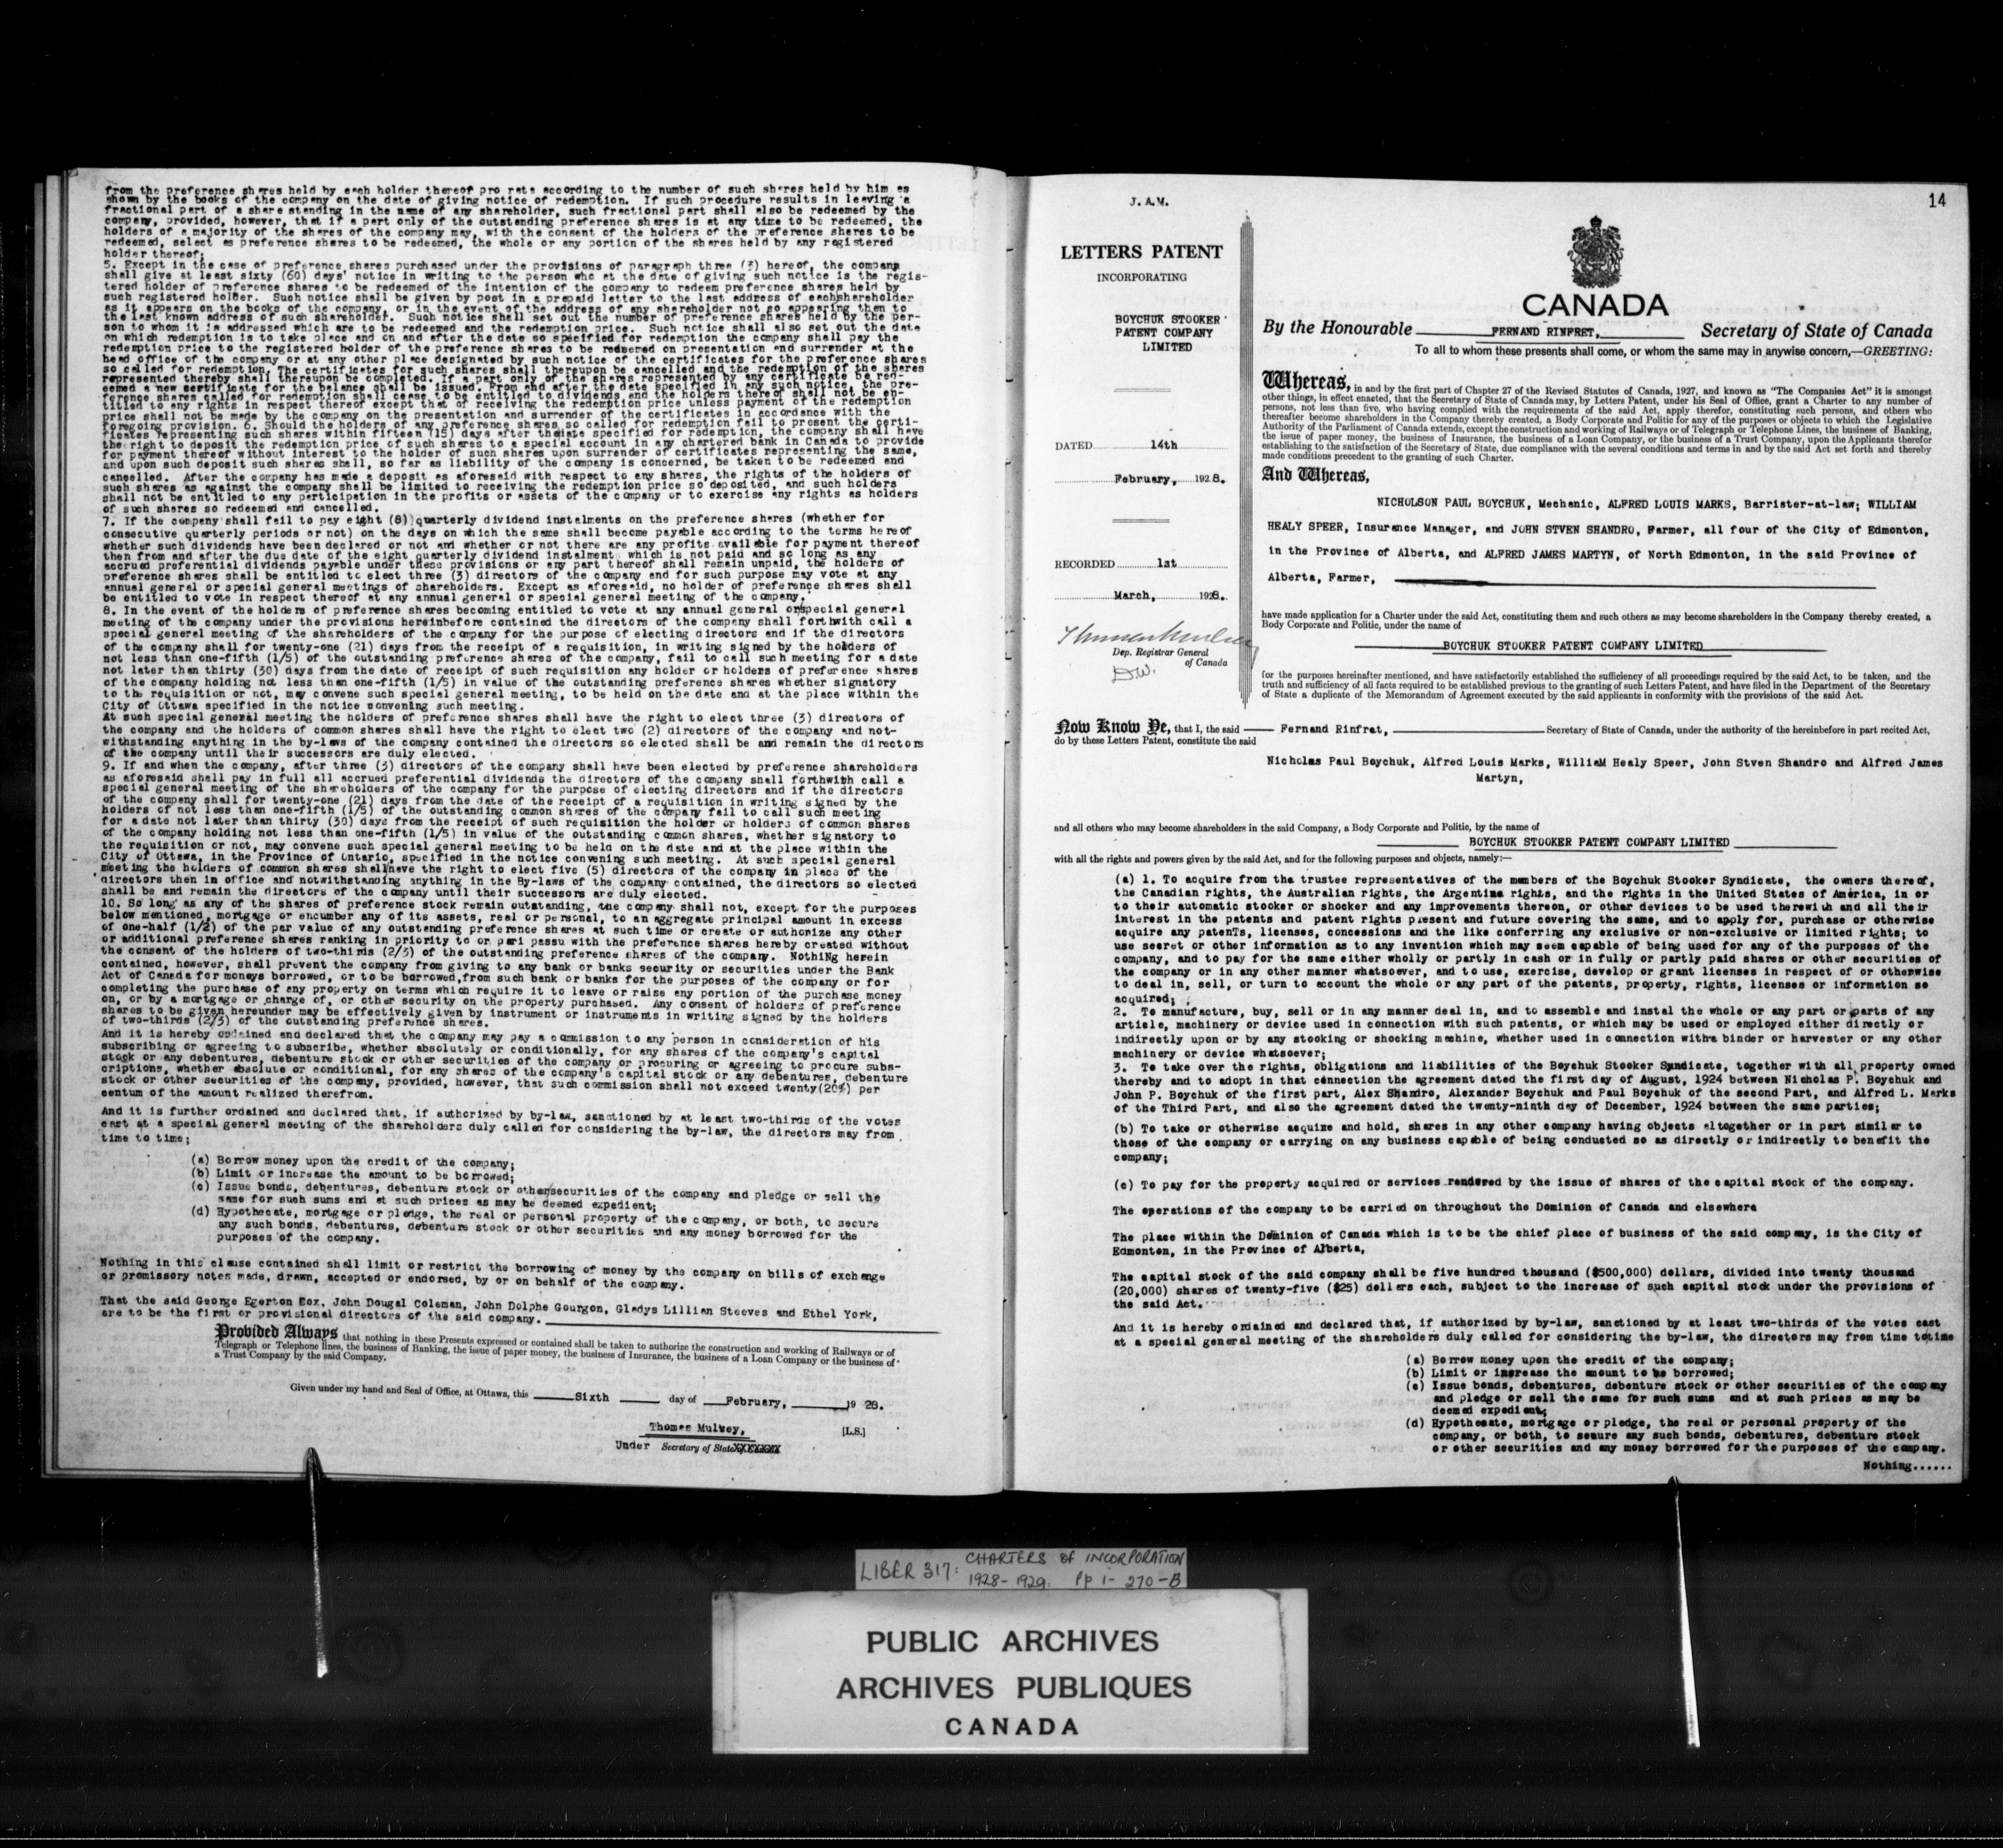 from the preference shares held by each holder thereof pro rata according to the number of such shares held by him as
shown by the books of the company on the date of giving notice of redemption. If such procedure results in leaving a
fractional part of a share standing in the name of any shareholder, such fractional part shall also be redeemed by the
company, provided, however, that if a part only of the outstanding preference shares is at any time to be redeemed, the
holders of a majority of the shares of the company may, with the consent of the holders of the preference shares to be
redeemed, select as preference shares to be redeemed, the whole or any portion of the shares held by any registered
holder thereof;
5. Except in the case of preference shares purchased under the provisions of paragraph three (3) hereof, the company
shall give at least sixty (60) days' notice in writing to the person who at the date of giving such notice is the regis-
tered holder of preference shares to be redeemed of the intention of the company to redeem preference shares held by
such registered holder. Such notice shall be given by post in a prepaid letter to the last address of each shareholder
as it appears on the books of the company, or in the event of the address of any shareholder not so appearing then to
the last known address of such shareholder. Such notice shall set out the number of preference shares held by the per-
son to whom it is addressed which are to be redeemed and the redemption price. Such notice shall also set out the date
on which redemption is to take place and on and after the date so specified for redemption the company shall pay the
redemption price to the registered holder of the preference shares to be redeemed on presentation and surrender at the
head office of the company or at any other place designated by such notice of the certificates for the preference shares
so called for redemption. The certificates for such shares shall thereupon be cancelled and the redemption of the shares
represented thereby shall thereupon be completed. If a part only of the shares represented by any certificate be red-
eemed a new certificate for the balance shall be issued. From and after the date specified in any such notice, the pre-
ference shares called for redemption shall cease to be entitled to dividends and the holders thereof shall not be en-
titled to any rights in respect thereof except that of receiving the redemption price unless payment of the redemption
price shall not be made by the company on the presentation and surrender of the certificates in accordance with the
foregoing provision. 6. Should the holders of any preference shares so called for redemption fail to present the certi-
ficates representing such shares within fifteen (15) days after the date specified for redemption, the company shall have
the right to deposit the redemption price of such shares to a special account in any chartered bank in Canada to provide
for payment thereof without interest to the holder of such shares upon surrender of certificates representing the same,
and upon such deposit such shares shall, so far as liability of the company is concerned, be taken to be redeemed and
cancelled. After the company has made a deposit as aforesaid with respect to any shares, the rights of the holders of
such shares as against the company shall be limited to receiving the redemption price so deposited, and such holders
shall not be entitled to any participation in the profits or assets of the company or to exercise any rights as holders
of such shares so redeemed and cancelled.
7. If the company shall fail to pay eight (8) quarterly dividend instalments on the preference shares (whether for
consecutive quarterly periods or not) on the days on which the same shall become payable according to the terms hereof
whether such dividends have been declared or not and whether or not there are any profits available for payment thereof
then from and after the due date of the eight quarterly dividend instalment which is not paid and so long as any
accrued preferential dividends payable under these provisions or any part thereof shall remain unpaid, the holders of
preference shares shall be entitled to elect three (3) directors of the company and for such purpose may vote at any
annual general or special general meetings of shareholders. Except as aforesaid, no holder of preference shares shall
be entitled to vote in respect thereof at any annual general or special general meeting of the company.
8. In the event of the holders of preference shares becoming entitled to vote at any annual general or special general
meeting of the company under the provisions hereinbefore contained the directors of the company shall forthwith call a
special general meeting of the shareholders of the company for the purpose of electing directors and if the directors
of the company shall for twenty-one (21) days from the receipt of a requisition, in writing signed by the holders of
not less than one-fifth (1/5) of the outstanding preference shares of the company, fail to call such meeting for a date
not later than thirty (30) days from the date of receipt of such requisition any holder or holders of preference shares
of the company holding not less than one-fifth (1/5) in value of the outstanding preference shares whether signatory
to the requisition or not, may convene such special general meeting, to be held on the date and at the place within the
City of Ottawa specified in the notice convening such meeting.
At such special general meeting the holders of preference shares shall have the right to elect three (3) directors of
the company and the holders of common shares shall have the right to elect two (2) directors of the company and not-
withstanding anything in the by-laws of the company contained the directors so elected shall be and remain the directors
of the company until their successors are duly elected.
9. If and when the company, after three (3) directors of the company shall have been elected by preference shareholders
as aforesaid shall pay in full all accrued preferential dividends the directors of the company shall forthwith call a
special general meeting of the shareholders of the company for the purpose of electing directors and if the directors
of the company shall for twenty-one (21) days from the date of the receipt of a requisition in writing signed by the
holders of not less than one-fifth (1/5) of the outstanding common shares of the company fail to call such meeting
for a date not later than thirty (30) days from the receipt of such requisition the holder or holders of common shares
of the company holding not less than one-fifth (1/5) in value of the outstanding common shares, whether signatory to
the requisition or not, may convene such special general meeting to be held on the date and at the place within the
City of Ottawa, in the Province of Ontario, specified in the notice convening such meeting. At such special general
meeting the holders of common shares shall have the right to elect five (5) directors of the company in place of the
directors then in office and notwithstanding anything in the By-laws of the company contained, the directors so elected
shall be and remain the directors of the company until their successors are duly elected.
10. So long as any of the shares of preference stock remain outstanding, the company shall not, except for the purposes
below mentioned, mortgage or encumber any of its assets, real or personal, to an aggregate principal amount in excess
of one-half (1/2) of the par value of any outstanding preference shares at such time or create or authorize any other
or additional preference shares ranking in priority to or pari passu with the preference shares hereby created without
the consent of the holders of two-thirds (2/3) of the outstanding preference shares of the company. NothiNg herein
contained, however, shall prevent the company from giving to any bank or banks security or securities under the Bank
Act of Canada for moneys borrowed, or to be borrowed, from such bank or banks for the purposes of the company or for
completing the purchase of any property on terms which require it to leave or raise any portion of the purchase money
on, or by a mortgage or charge of, or other security on the property purchased. Any consent of holders of preference
shares to be given hereunder may be effectively given by instrument or instruments in writing signed by the holders
of two-thirds (2/3) of the outstanding preference shares.
And it is hereby ordained and declared that the company may pay a commission to any person in consideration of his
subscribing or agreeing to subscribe, whether absolutely or conditionally, for any shares of the company's capital
stock or any debentures, debenture stock or other securities of the company or procuring or agreeing to procure subs-
criptions, whether absolute or conditional, for any shares of the company's capital stock or any debentures, debenture
stock or other securities of the company, provided, however, that such commission shall not exceed twenty(20%) per
centum of the amount realized therefrom.
And it is further ordained and declared that, if authorized by by-law, sanctioned by at least two-thirds of the votes
cast at a special general meeting of the shareholders duly called for considering the by-law, the directors may from
time to time;
(a) Borrow money upon the credit of the company;
(b) Limit or increase the amount to be borrowed;
(c) Issue bonds, debentures, debenture stock or other securities of the company and pledge or sell the
same for such sums and at such prices as may be deemed expedient;
(d) Hypothecate, mortgage or pledge, the real or personal property of the company, or both, to secure
any such bonds, debentures, debenture stock or other securities and any money borrowed for the
purposes of the company.
Nothing in this clause contained shall limit or restrict the borrowing of money by the company on bills of exchange
or promissory notes made, drawn, accepted or endorsed, by or on behalf of the company.
That the said George Egerton Cox, John Dougal Coleman, John Dolphe Gourgon, Gladys Lillian Steeves and Ethel York,
are to be the first or provisional directors of the said company.
Provided Always that nothing in these Presents expressed or contained shall be taken to authorize the construction and working of Railways or of
Telegraph or Telephone lines, the business of Banking, the issue of paper money, the business of Insurance, the business of a Loan Company or the business of
a Trust Company by the said Company.
Given under my hand and Seal of Office, at Ottawa, this Sixth day of February, 19 28.
Thomas Mulvey, [L.S.]
Under Secretary of State
J. A. M.
14
LETTERS PATENT
INCORPORATING
BOYCHUK STOOKER
PATENT COMPANY
LIMITED
DATED 14th
February, 1928.
RECORDED 1st
March, 1928.
Dep. Registrar General
of Canada
D.W.
CANADA
By the Honourable FERNAND RINFRET, Secretary of State of Canada
To all to whom these presents shall come, or whom the same may in anywise concern,—GREETING:
Whereas, in and by the first part of Chapter 27 of the Revised Statutes of Canada, 1927, and known as "The Companies Act" it is amongst
other things, in effect enacted, that the Secretary of State of Canada may, by Letters Patent, under his Seal of Office, grant a Charter to any number of
persons, not less than five, who having complied with the requirements of the said Act, apply therefor, constituting such persons, and others who
thereafter become shareholders in the Company thereby created, a Body Corporate and Politic for any of the purposes or objects to which the Legislative
Authority of the Parliament of Canada extends, except the construction and working of Railways or of Telegraph or Telephone Lines, the business of Banking,
the issue of paper money, the business of Insurance, the business of a Loan Company, or the business of a Trust Company, upon the Applicants therefor
establishing to the satisfaction of the Secretary of State, due compliance with the several conditions and terms in and by the said Act set forth and thereby
made conditions precedent to the granting of such Charter.
And Whereas,
NICHOLSON PAUL BOYCHUK, Mechanic, ALFRED LOUIS MARKS, Barrister-at-law; WILLIAM
HEALY SPEER, Insurance Manager, and JOHN STVEN SHANDRO, Farmer, all four of the City of Edmonton,
in the Province of Alberta, and ALFRED JAMES MARTYN, of North Edmonton, in the said Province of
Alberta, Farmer,
have made application for a Charter under the said Act, constituting them and such others as may become shareholders in the Company thereby created, a
Body Corporate and Politic, under the name of
BOYCHUK STOOKER PATENT COMPANY LIMITED
for the purposes hereinafter mentioned, and have satisfactorily established the sufficiency of all proceedings required by the said Act, to be taken, and the
truth and sufficiency of all facts required to be established previous to the granting of such Letters Patent, and have filed in the Department of the Secretary
of State a duplicate of the Memorandum of Agreement executed by the said applicants in conformity with the provisions of the said Act.
Now Know Ye, that I, the said Fernand Rinfret, Secretary of State of Canada, under the authority of the hereinbefore in part recited Act,
do by these Letters Patent, constitute the said
Nicholas Paul Boychuk, Alfred Louis Marks, WilliaM Healy Speer, John Stven Shandro and Alfred James
Martyn,
and all others who may become shareholders in the said Company, a Body Corporate and Politic, by the name of
BOYCHUK STOOKER PATENT COMPANY LIMITED
with all the rights and powers given by the said Act, and for the following purposes and objects, namely:—
(a) 1. To acquire from the trustee representatives of the members of the Boychuk Stooker Syndicate, the owners thereof,
the Canadian rights, the Australian rights, the Argentina rights, and the rights in the United States of America, in or
to their automatic stooker or shocker and any improvements thereon, or other devices to be used therewith and all their
interest in the patents and patent rights present and future covering the same, and to apply for, purchase or otherwise
acquire any patenTs, licenses, concessions and the like conferring any exclusive or non-exclusive or limited rights; to
use secret or other information as to any invention which may seem capable of being used for any of the purposes of the
company, and to pay for the same either wholly or partly in cash or in fully or partly paid shares or other securities of
the company or in any other manner whatsoever, and to use, exercise, develop or grant licenses in respect of or otherwise
to deal in, sell, or turn to account the whole or any part of the patents, property, rights, licenses or information so
acquired;
2. To manufacture, buy, sell or in any manner deal in, and to assemble and instal the whole or any part or parts of any
article, machinery or device used in connection with such patents, or which may be used or employed either directly or
indirectly upon or by any stooking or shocking machine, whether used in connection with a binder or harvester or any other
machinery or device whatsoever;
3. To take over the rights, obligations and liabilities of the Boychuk Stooker Syndicate, together with all property owned
thereby and to adopt in that connection the agreement dated the first day of August, 1924 between Nicholas P. Boychuk and
John P. Boychuk of the first part, Alex Shandro, Alexander Boychuk and Paul Boychuk of the second Part, and Alfred L. Marks
of the Third Part, and also the agreement dated the twenty-ninth day of December, 1924 between the same parties;
(b) To take or otherwise acquire and hold, shares in any other company having objects altogether or in part similar to
those of the company or carrying on any business capable of being conducted so as directly or indirectly to benefit the
company;
(c) To pay for the property acquired or services rendered by the issue of shares of the capital stock of the company.
The operations of the company to be carried on throughout the Dominion of Canada and elsewhere
The place within the Dominion of Canada which is to be the chief place of business of the said company, is the City of
Edmonton, in the Province of Alberta,
The capital stock of the said company shall be five hundred thousand ($500,000) dollars, divided into twenty thousand
(20,000) shares of twenty-five ($25) dollars each, subject to the increase of such capital stock under the provisions of
the said Act.
And it is hereby ordained and declared that, if authorized by by-law, sanctioned by at least two-thirds of the votes cast
at a special general meeting of the shareholders duly called for considering the by-law, the directors may from time to time
(a) Borrow money upon the credit of the company;
(b) Limit or increase the amount to be borrowed;
(c) Issue bonds, debentures, debenture stock or other securities of the company
and pledge or sell the same for such sums and at such prices as may be
deemed expedient;
(d) Hypothecate, mortgage or pledge, the real or personal property of the
company, or both, to secure any such bonds, debentures, debenture stock
or other securities and any money borrowed for the purposes of the company.
Nothing......
LIBER 317: CHARTERS OF INCORPORATION
1928-1929. Pp 1- 270-B
PUBLIC ARCHIVES
ARCHIVES PUBLIQUES
CANADA